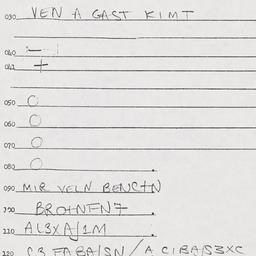 030 VEN A GAST KIMT
040 —
041 +
050 O
060 O
070 O
080 O .
090 MIR VELN BENC+N
100 BRO+NFN7 .
110 AL3XA/1M
120 C3 FABA/SN / A C1BA/S3XC